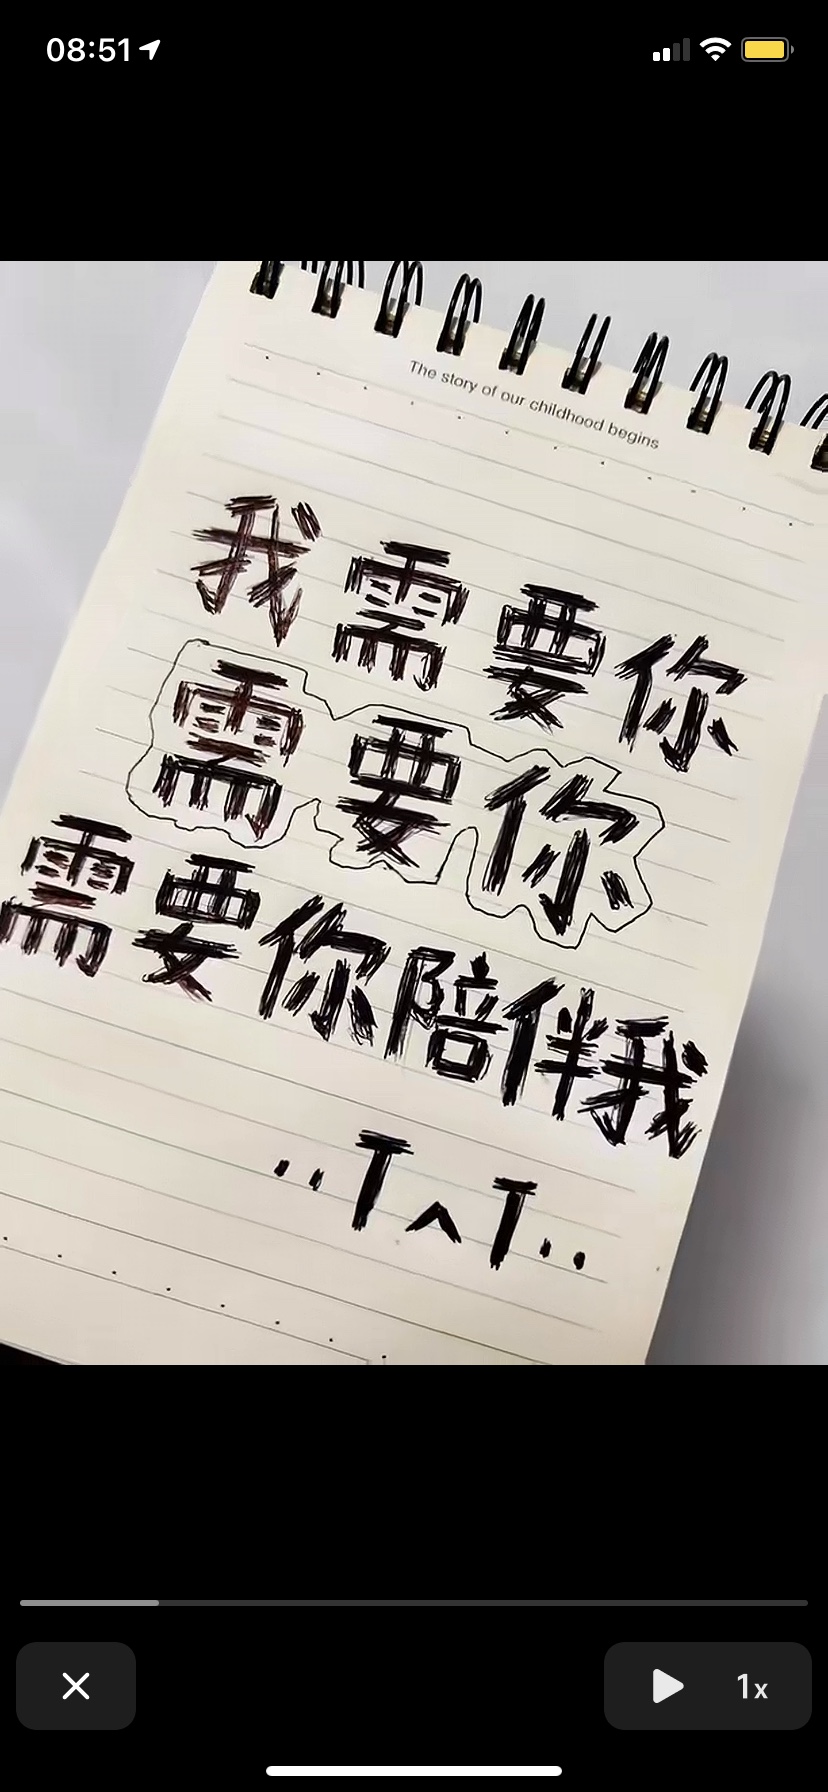 08:51
The story of our childhood begins
我需要你
需要你
需要你陪伴我
..T^T..
1x